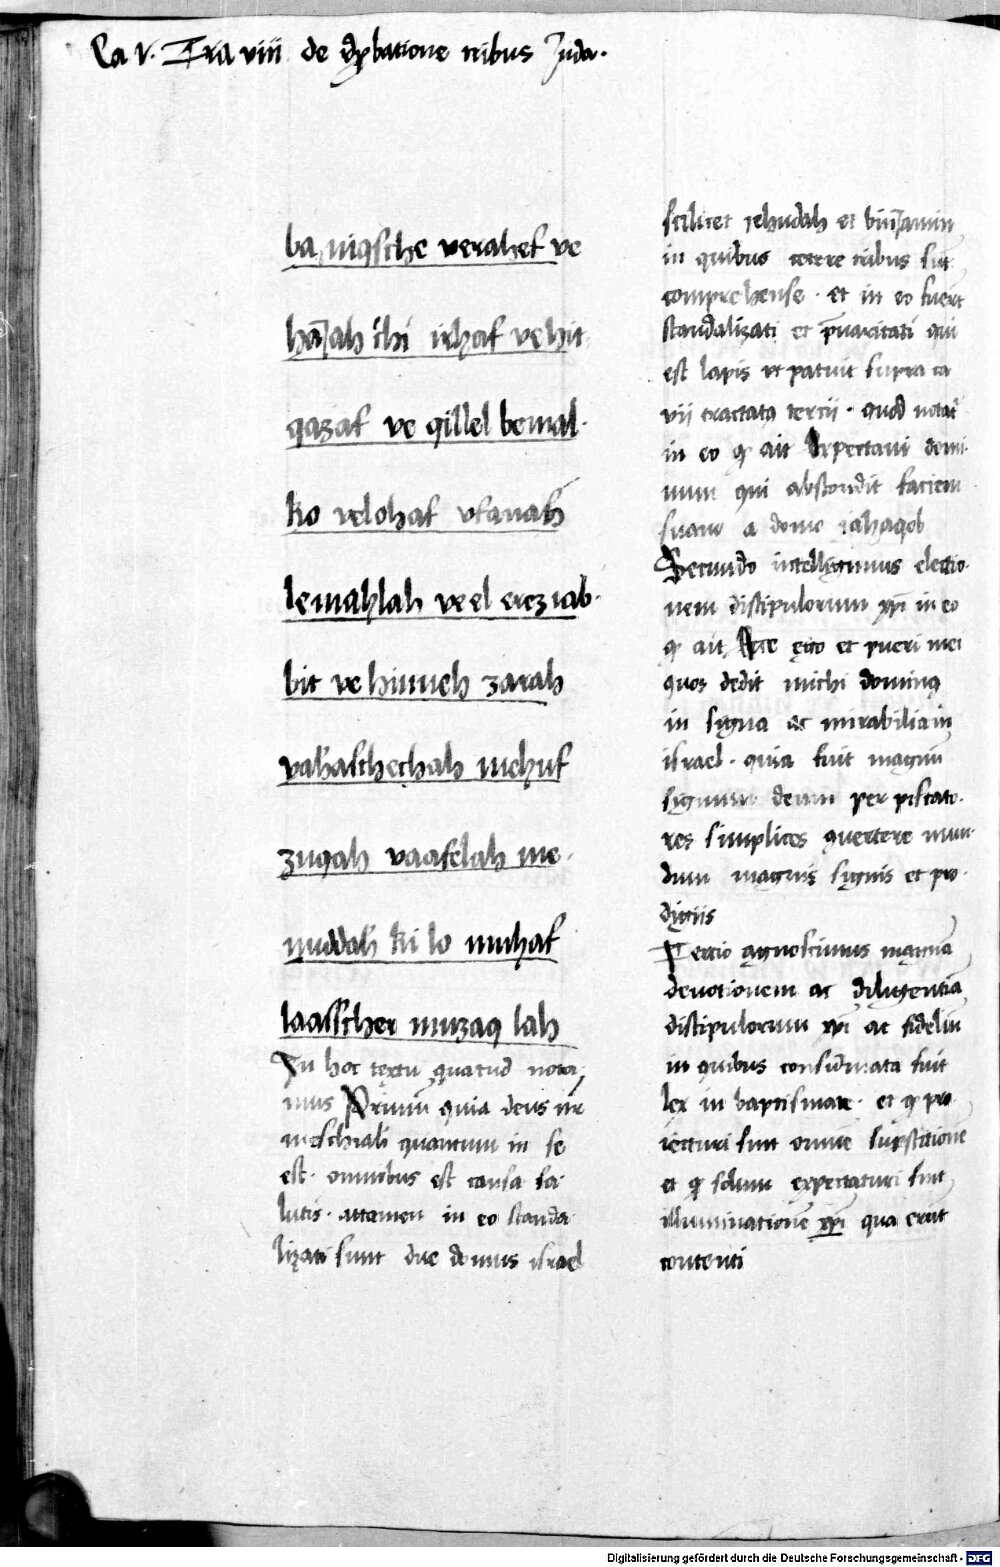 Ca v. Tra viii de dprobatione tribus Juda.
ba niqsche verahef ve
haiah chi irhaf vehit
qazaf ve qillel bemal.
ko velohaf vfanah
lemahlah ve el erez iab.
bit ve hinneh zarah
vahaschechah mehuf
zuqah vaafelah me.
nuddah ki lo muhaf
laasscher muzaq lah
In hoc textu quatud nota
mus Primu quia deus nr
meschiah quantum in se
est. omnibus est causa sa
lutis. attamen in eo scanda
lizati sunt due domus israel
scilicet jehudah et biniamin
in quibus cetere tribus sut
comprehense. et in eo fuert
scandalizati et pvaricati qui
est lapis vt patuit supra ca
vii tractatg tercii. quod notat
in eo q ait Expectavi domi
num qui abscondit faciem
suam a domo iahaqob
Secundo intelligimus electio
nem discipulorum xpi in eo
q ait Ecce ego et pueri mei
quos dedit michi dominq
in signa ac mirabilia in
israel. quia fuit magnu
signum deum per piscato.
res simplices quertere mun
dum magnis signis et pro.
digiis
Tercio agnoscimus magna
devotionem ac diligentia
discipulorum xpi ac fideliu
in quibus consumata fuit
lex in baptismate. et q pro
iecturi sunt omne supstitione
et q solum expectaturi sint
illuminatione xpi qua erut
contenti
Digitalisierung gefördert durch die Deutsche Forschungsgemeinschaft - DFG